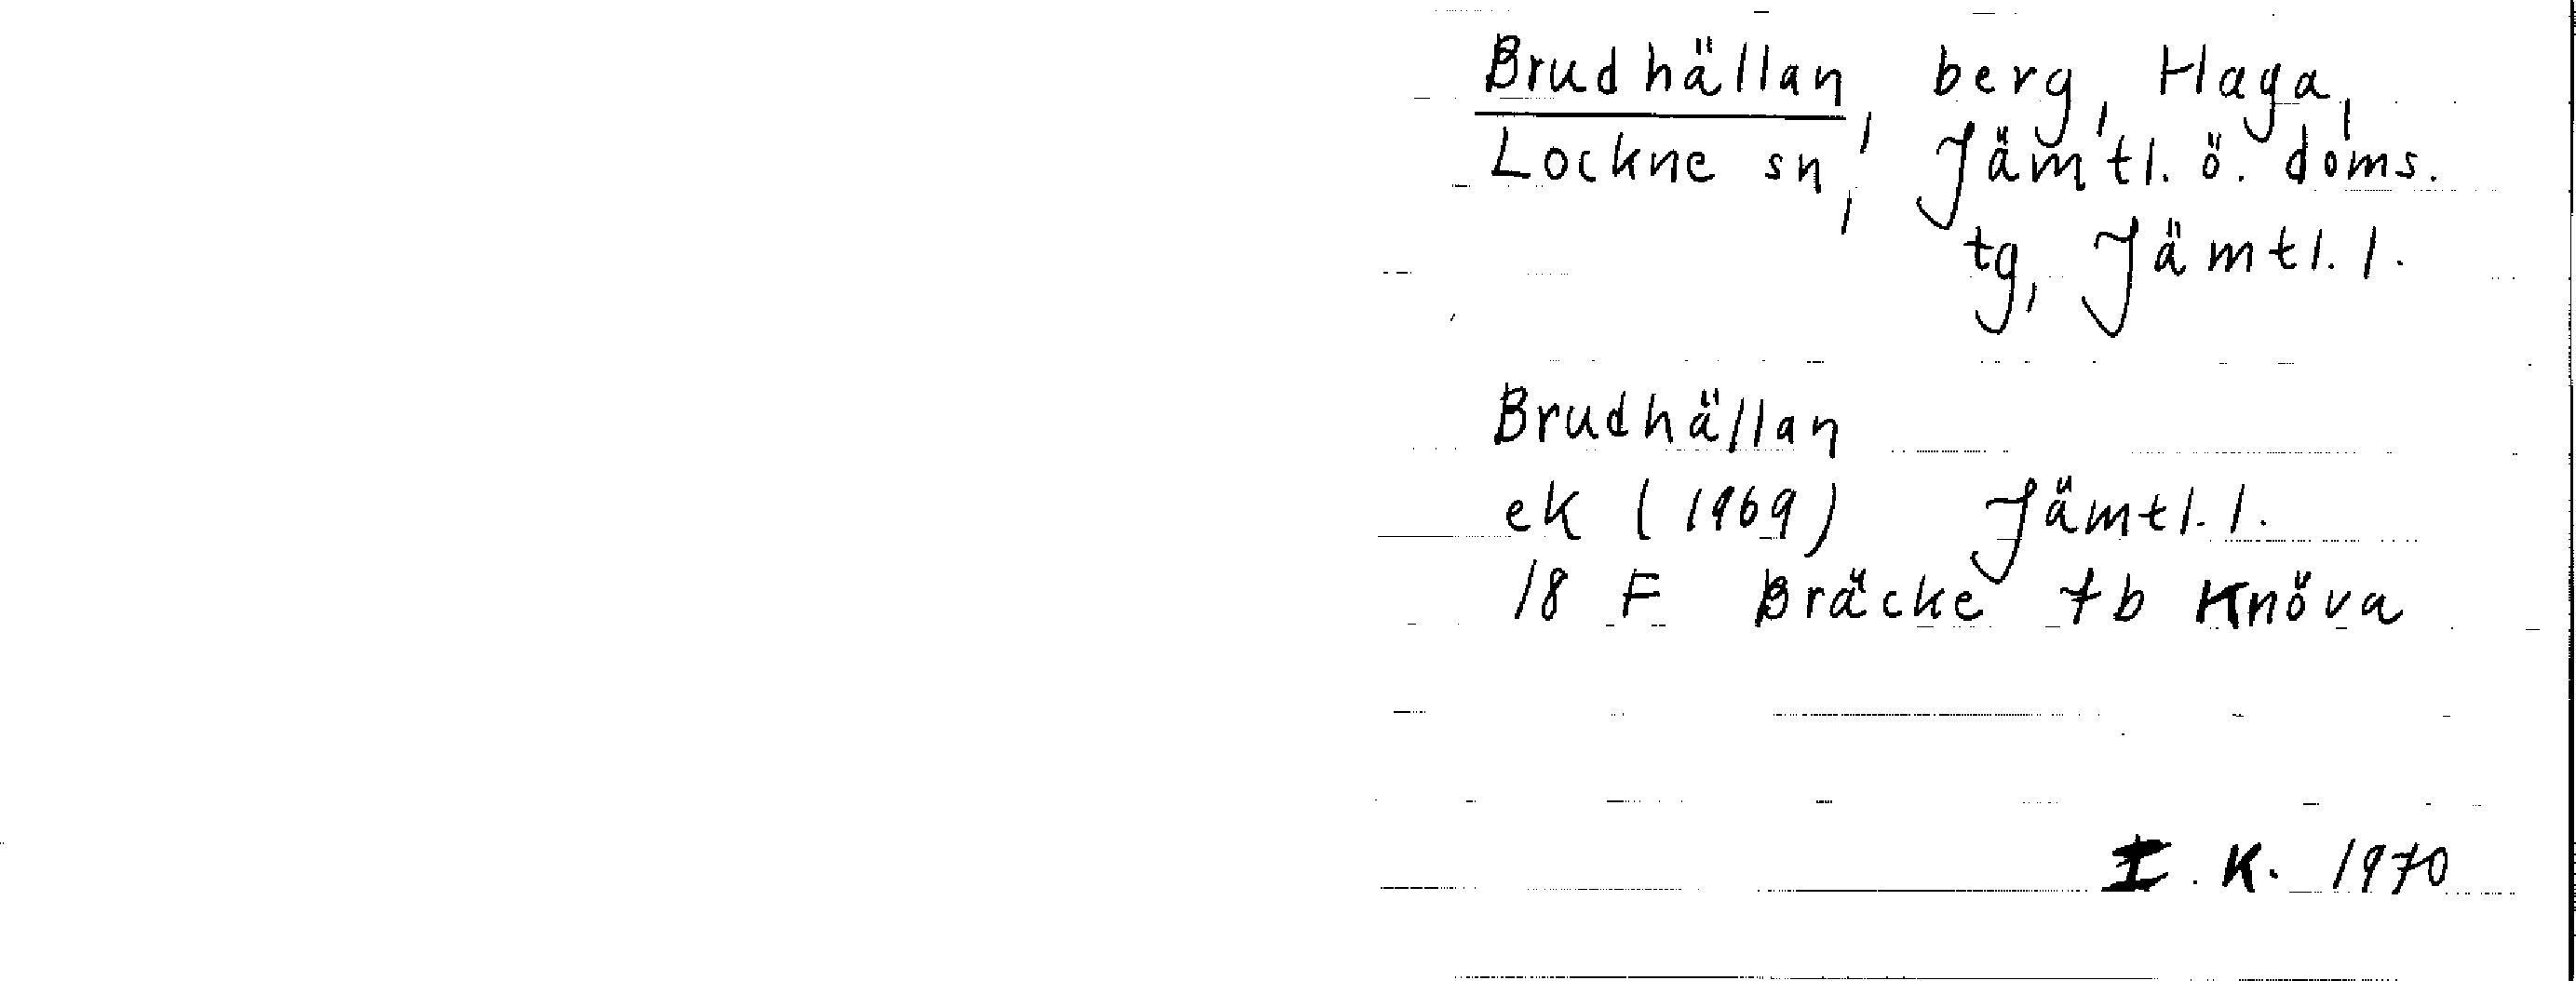 Brudhällan, berg, Haga,
Lockne sn, Jämtl. ö. doms.
tg, Jämtl. l.
Brudhällan
ek (1969) Jämtl. l.
18 F Bräcke 7b Knöva
I. K. 1970